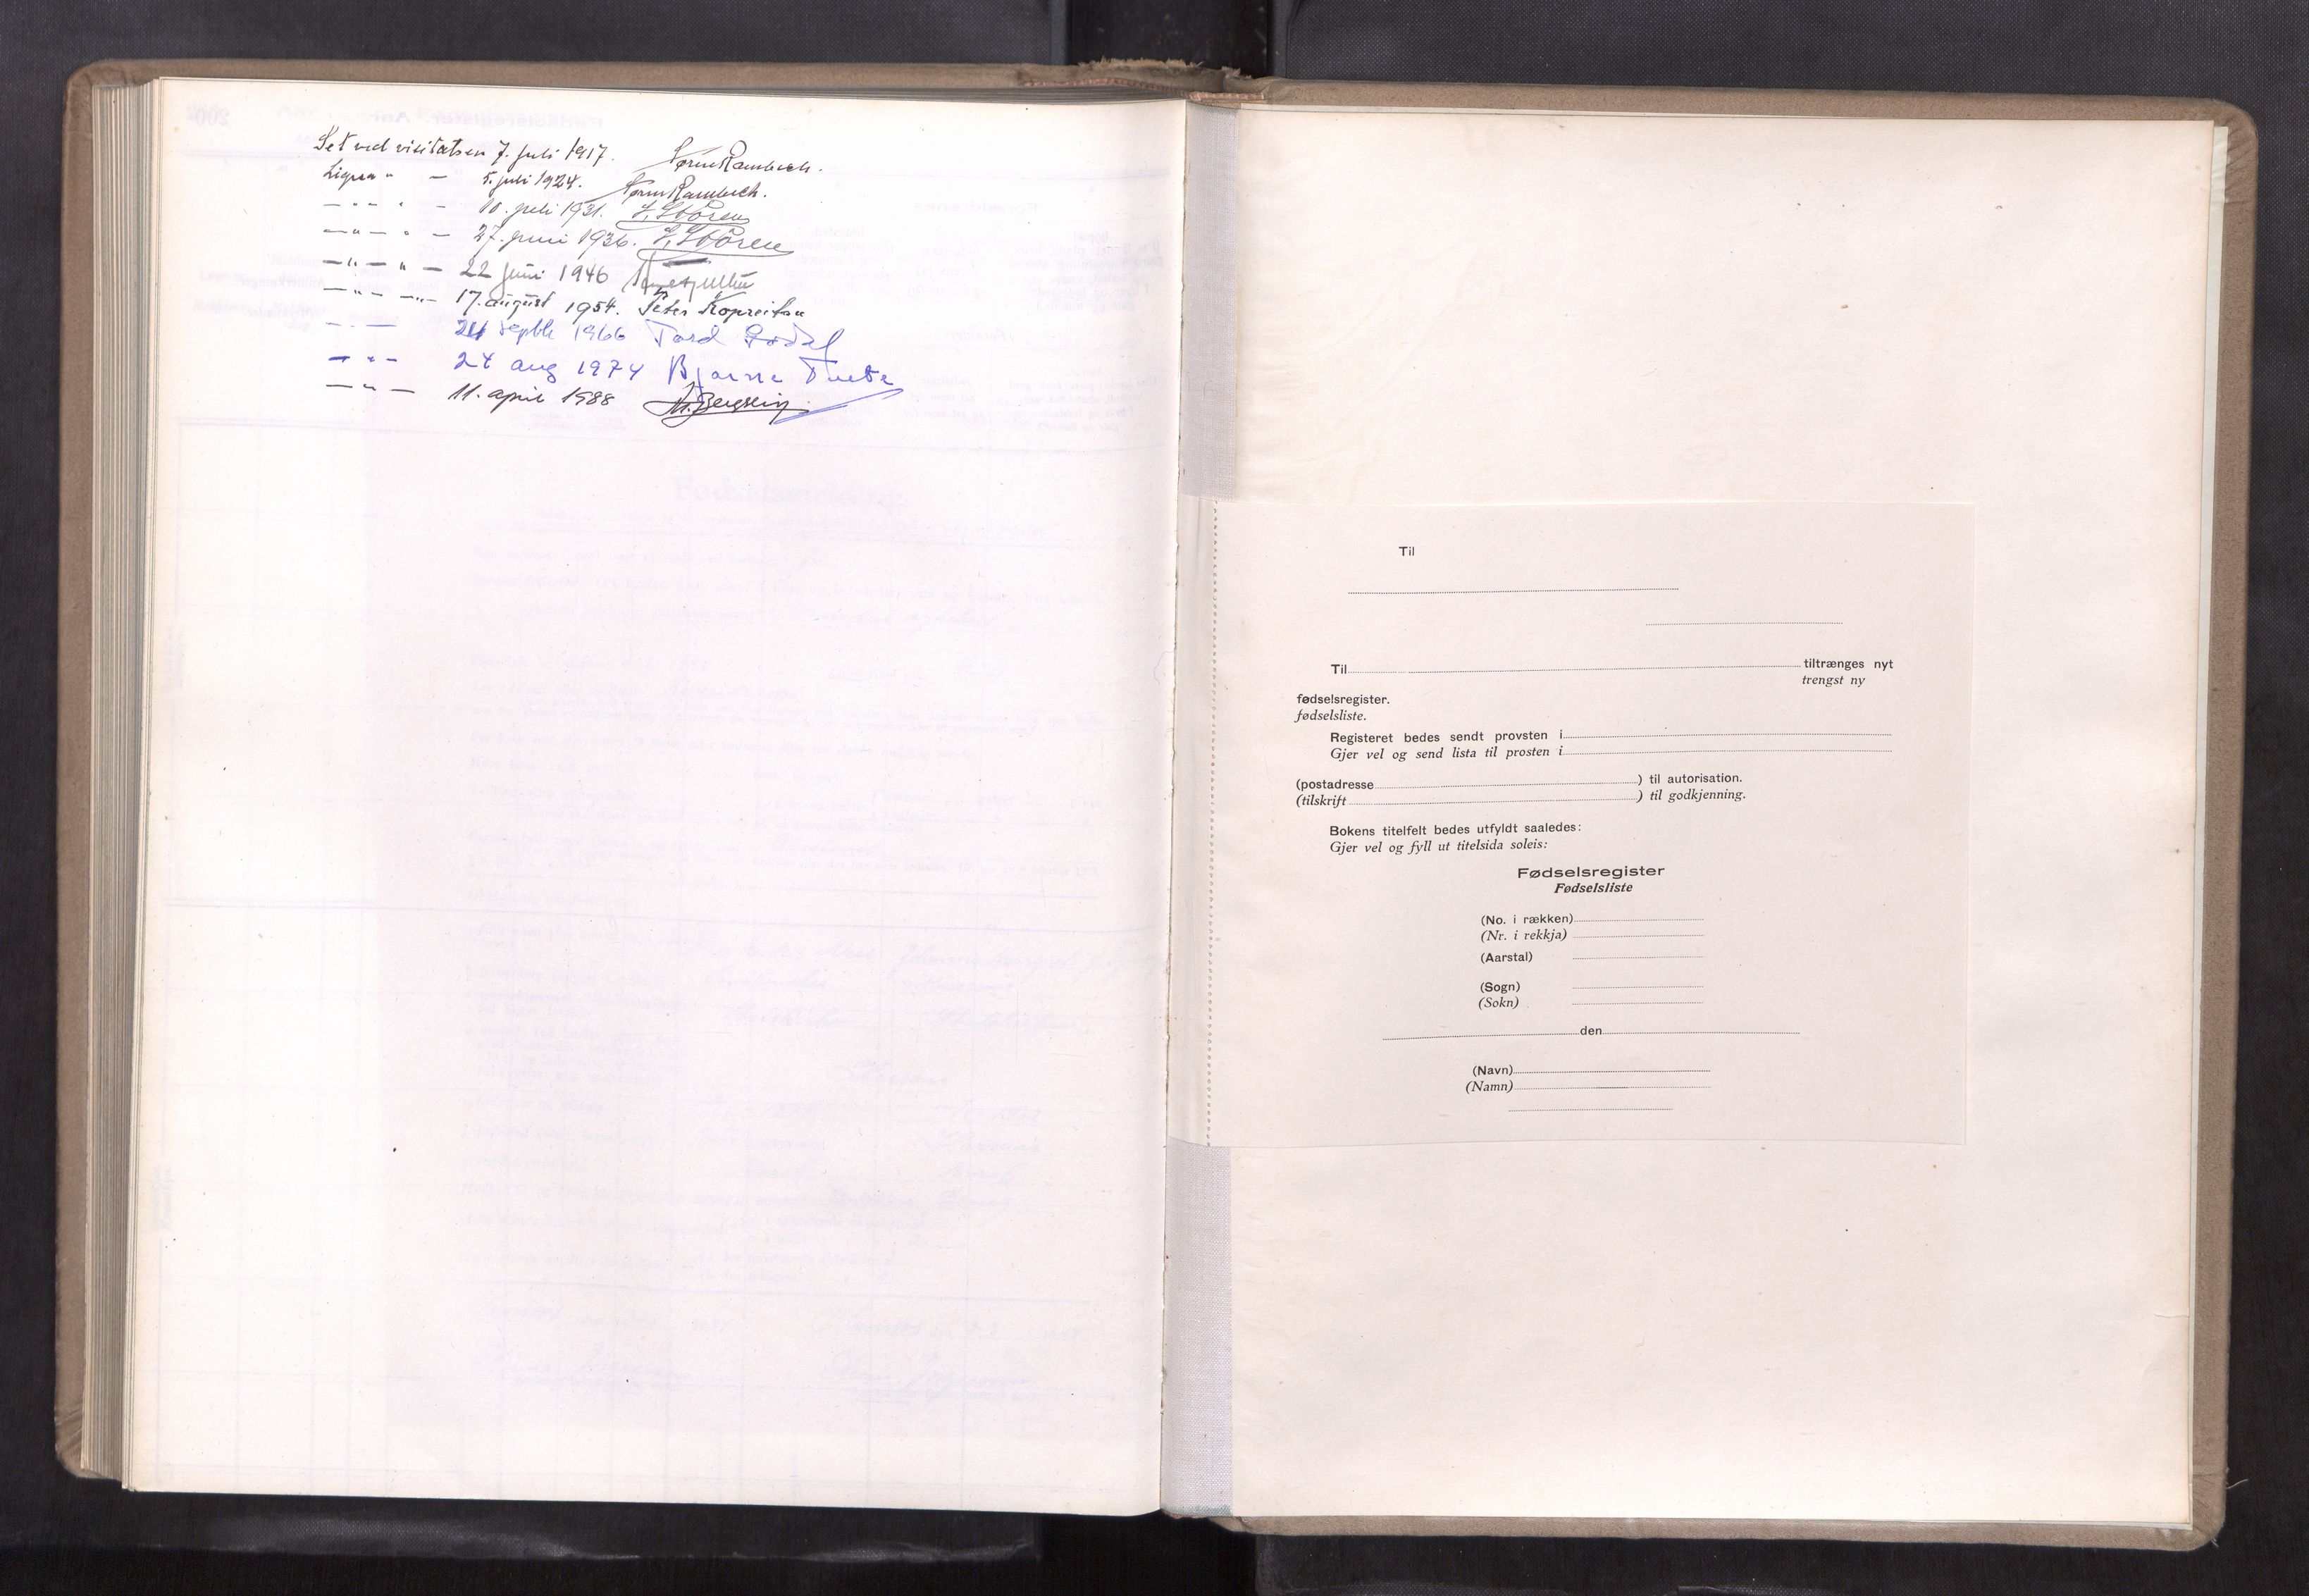 Set ved visitatsen 7. juli 1917.
Ligesaa " — 5. juli 1924.
— " — " — 10. juli 1931. J. Støren
— " — " — 27. juni 1936. J. Støren
— " — " — 22 juni 1946
— " — — " — 17. august 1954. Peter
— " — 24 septbr 1966 Tord Godal
— " — 24 aug 1974 Bjarne
— " — 11. april 1988
Til
Til tiltrænges nyt
trengst ny
fødselsregister.
fødselsliste.
Registeret bedes sendt provsten i
Gjer vel og send lista til prosten i
(postadresse ) til autorisation.
(tilskrift ) til godkjenning.
Bokens titelfelt bedes utfyldt saaledes:
Gjer vel og fyll ut titelsida soleis:
Fødselsregister
Fødselsliste
(No. i rækken)
(Nr. i rekkja)
(Aarstal)
(Sogn)
(Sokn)
den
(Navn)
(Namn)